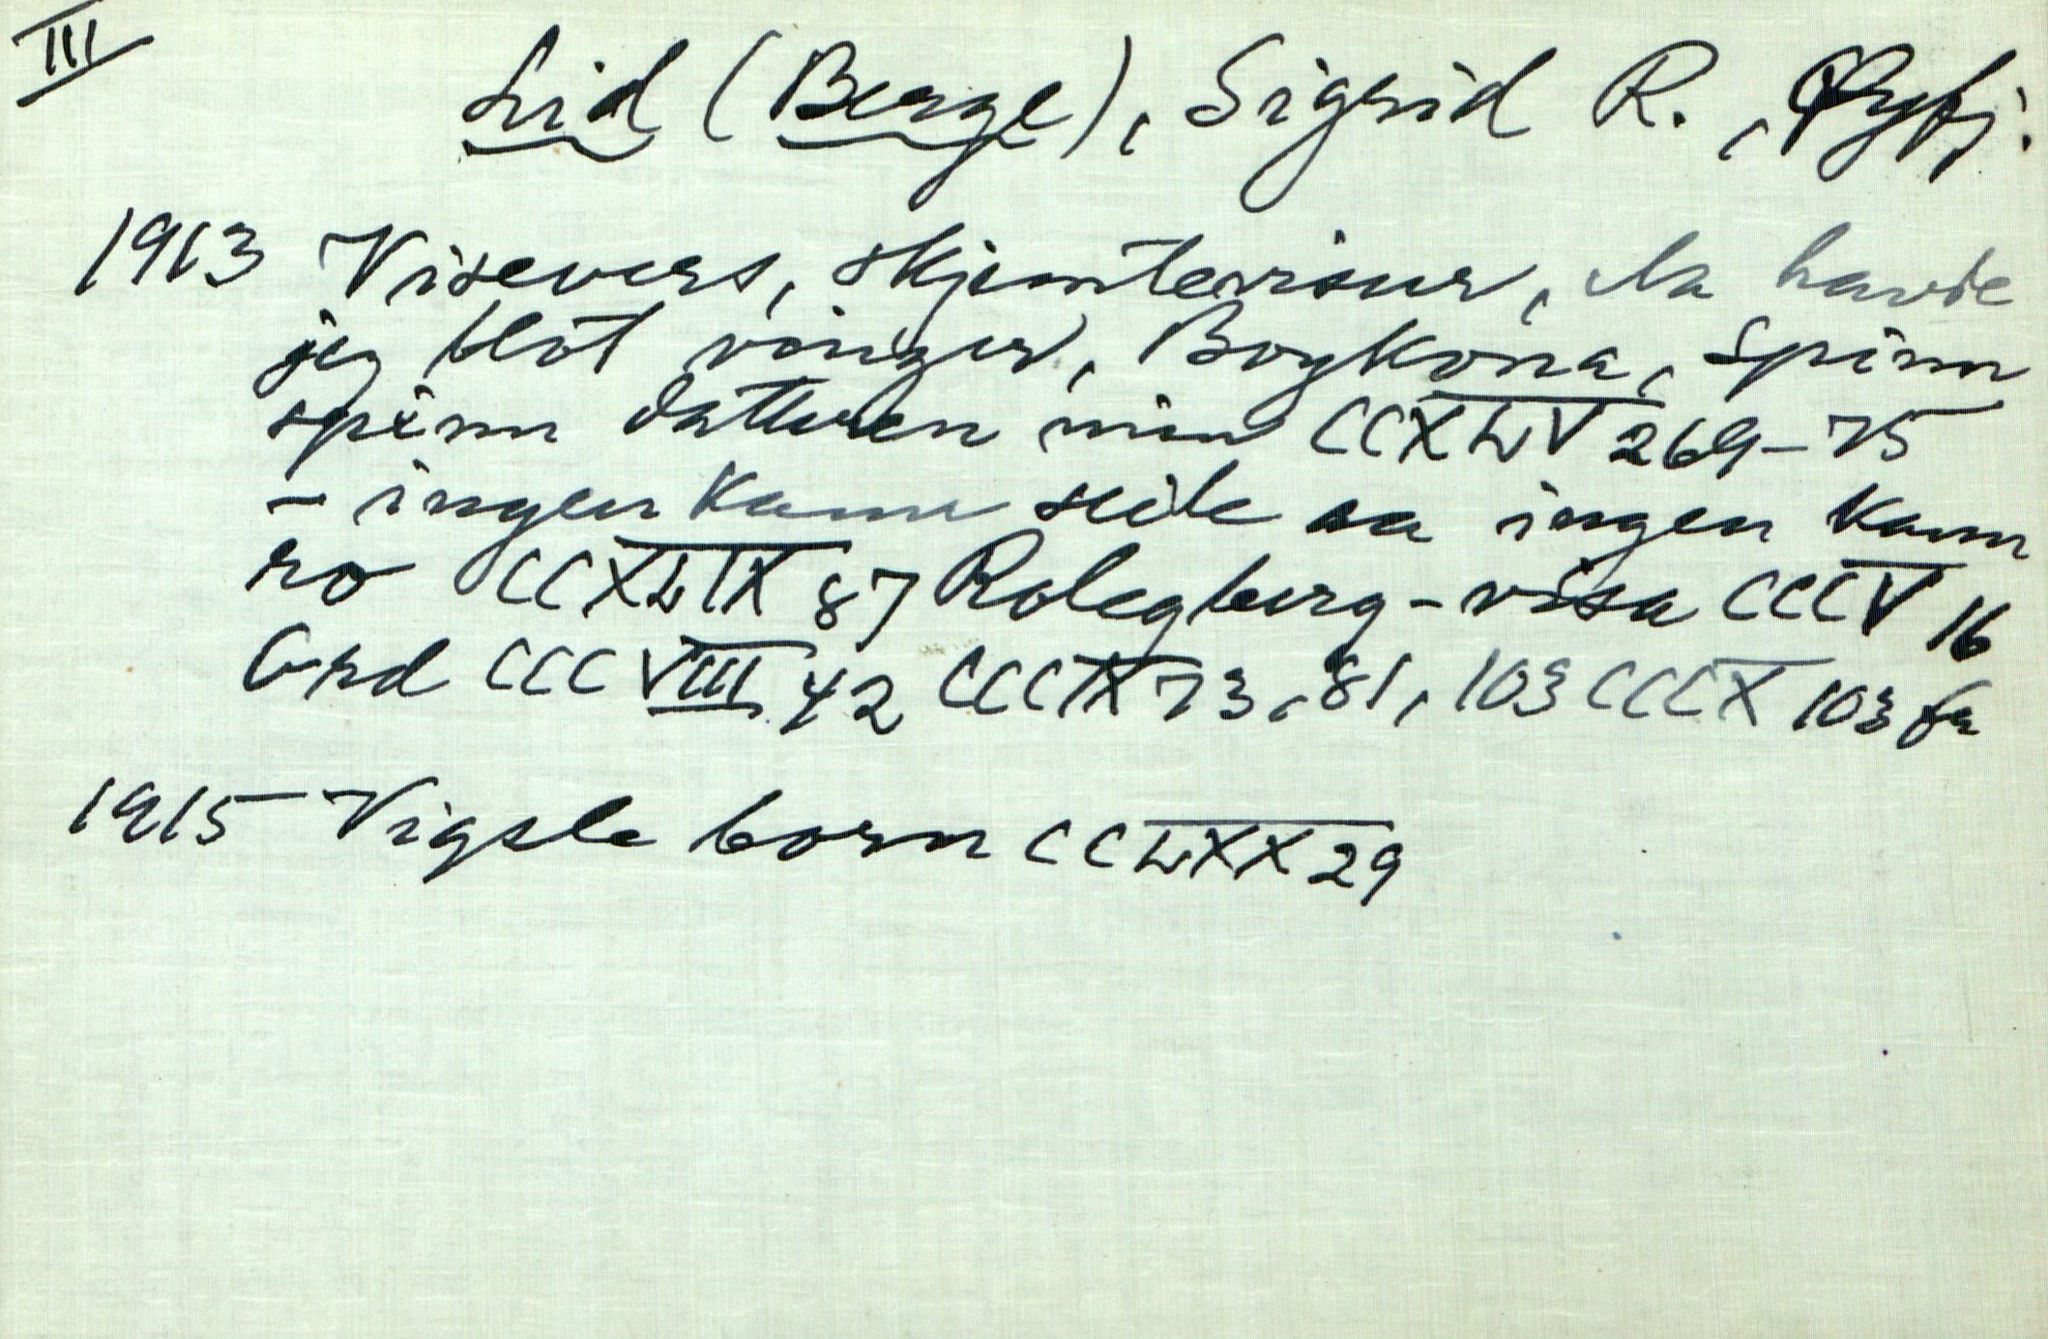 III
Lid (Berge), Sigrid R., Øyfj.
1913 Visevers, skjemteviser, Aa havde
jeg blot vinger, Bogkona, Spinn
spinn datteren min CCXLV 269-75
- ingen kann seile aa ingen kann
ro CCXLIX 87 Rolegberg-visa CCCV 16
Ord CCCVIII 42 CCCIX 73, 81, 103 CCCX 103 fr
1915 Vigsle born CCLXX 29